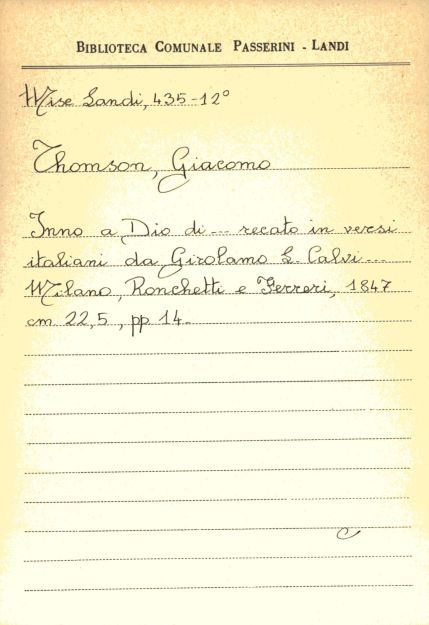 BIBLIOTECA COMUNALE PASSERINI - LANDI
Misc Landi, 435-12°
Thomson, Giacomo
Inno a Dio di ... recato in versi
italiani da Girolamo L. Calvi ...
Milano, Ronchetti e Ferreri, 1847
cm 22,5, pp 14.
C